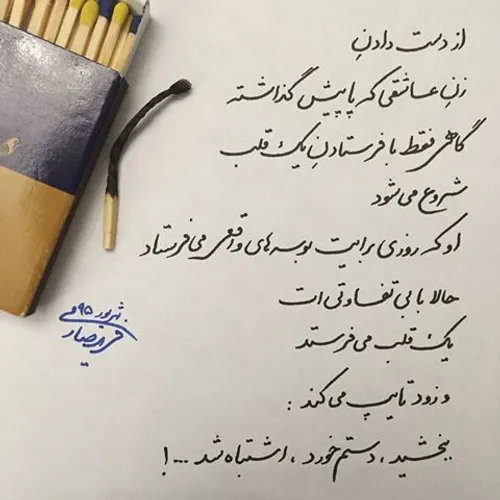 از دست دادنِ
زنِ عاشقی که پا پیش گذاشته
گاهی فقط با فرستادنِ یک قلب
شروع می‌شود
او که روزی برایت بوسه‌های واقعی می‌فرستاد
حالا با بی تفاوتی ات
یک قلب می‌فرستد
و زود تایپ می‌کند :
ببخشید ، دستم خورد ، اشتباه شد ... !
شهریور ۹۵